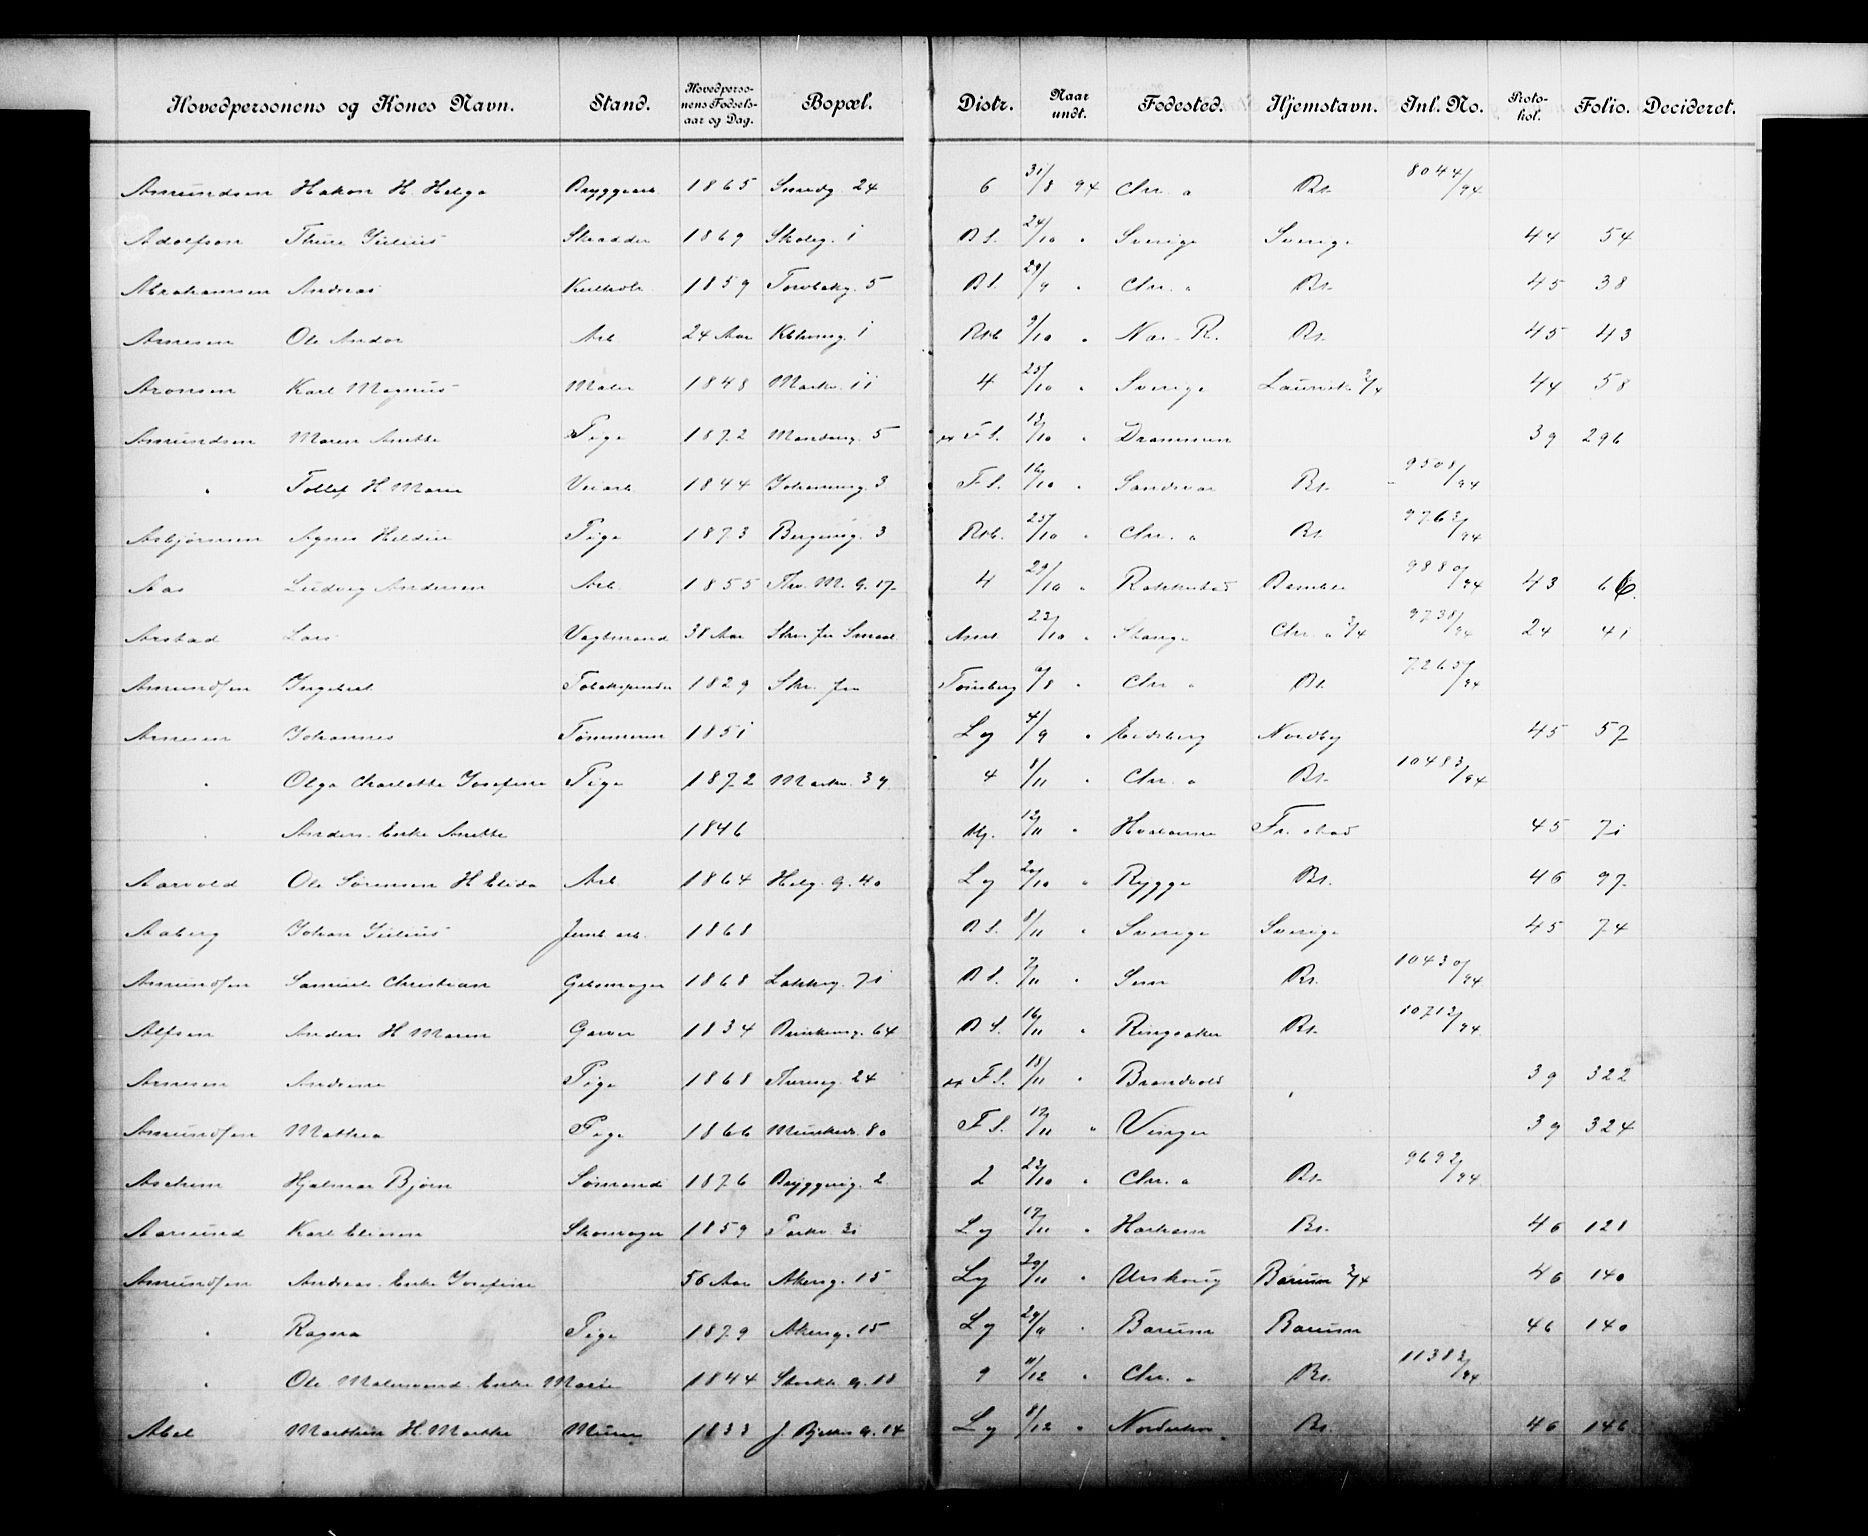 Hovedpersonens og Kones Navn. Stand. Hovedpersonens Fødselsaar og Dag. Bopæl. Distr. Naar undt. Fødested. Hjemstavn. Inl. No. Protokol. Folio. Decideret.
Amundsen Hakon H. Helga Bryggearb. 1865 Smedg. 24 6 31/8 94 Chr. a Bt. 8044/94
Adolfson Thure Julius Skrædder 1869 Skoleg. 1 B S. 24/10 " Sverige Sverige 44 54
Abrahamsen Andreas 1859 Torvbakg. 5 B S. 29/9 " Chr. a Bt. 45 38
Arnesen Ole Andor Arb. 24 Aar 1 Rkb 9/10 " Nes - R. Bt. 45 43
Aronsen Karl Magnus Maler 1848 Markv. 11 4 25/10 " Sverige Laurvik 2/4 44 58
Amundsen Maren Anette Pige 1872 5 F S. 13/10 " Drammen 39 296
" Tollef H. Maren Veiarb. 1844 Johannesg. 3 F S. 16/10 " Sandsvær Bt. 9508/94
Asbjørnsen Agnes Heldine Pige 1873 Bergensg. 3 Rkb. 25/10 " Chr. a Bt. 9763/94
Aas Ludvig Andersen Arb. 1855 Thv. M. G. 17 4 29/10 " Rakkestad Bamble 9880/94 43 66.
Arstad Lars Vagtmand 38 Aar Skr. fra 22/10 " Stange Chr. a 2/4 9738/94 24 41
Amundsen Ingebret 1829 Skr. fra Tønsberg 6/8 " Chr. a Bt. 7265/94
Arnesen Johannes Tømmerm. 1851 Lg 4/9 " Eidsberg Nordby 45 57
" Olga Charlotte Josefine Pige 1872 Markv. 39 4 1/11 " Chr. a Bt. 10483/94
" Anders. Enke Anette 1846 12/11 " Fr. stad 45 71
Aarvold Ole Sørensen H. Elida Arb. 1864 Helg. G. 40 Lg 20/10 " Rygge Bt. 46 97
Aaberg Johan Julius Jernb. arb. 1868 B S. 8/11 " Sverige Sverige 45 74
Amundsen Samuel Christian Gibsmager 1868 Lakkeg. 71 B S. 7/11 " Sem Bt. 10430/94
Alfsen Anders H. Maren Garver 1834 64 B S. 16/11 " Ringsaker Bt. 10712/94
Arnesen Andrine Pige 1868 Thereseg. 24 F S. 18/11 " Brandvold 39 322
Amundsen Mathea Pige 1866 Munkedv. 80 F S. 19/11 " Vinger 39 324
Aschim Hjalmar Bjørn Sømand 1876 Bryggerig. 2 2 23/10 " Chr. a Bt. 9692/94
Aamund Karl Eliasen Skomager 1859 Parkv. 21 Lg 17/11 " Bt. 46 121
Amundsen Andreas. Enke Josefine 56 Aar Akersg. 15 Lg 29/11 " Urskoug Bærum 2/4 46 140
" Ragna Pige 1879 Akersg. 15 Lg 29/11 " Bærum Bærum 46 140
" Ole Malersvend. Enke Marie 1844 Storkk. G. 18 9 11/12 " Chr. a Bt. 11382/94
Abel Marthin H. Marthe Murer 1833 J. Bjelkes G. 14 Lg 8/12 " Norderhov Bt. 46 146